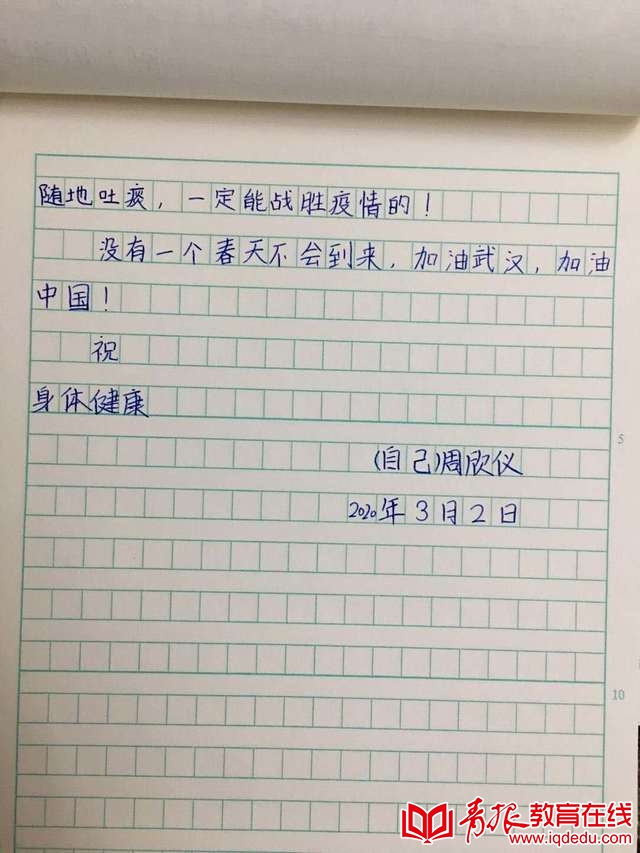 随地吐痰，一定能战胜疫情的！
没有一个春天不会到来，加油武汉，加油
中国！
祝
身体健康
5
(自己)周欣仪
2020年3月2日
10
青报教育在线
www.iqdedu.com